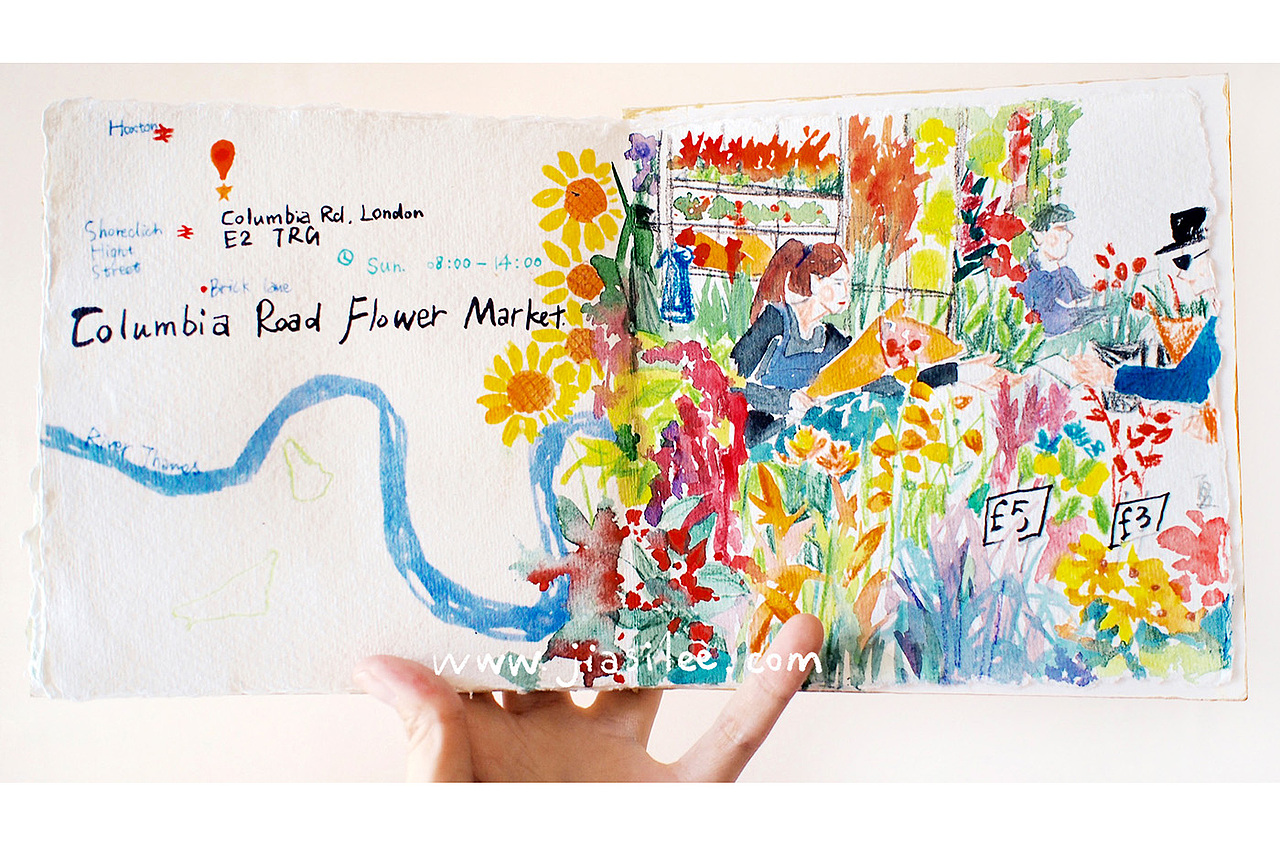 Hoxton
Columbia Rd. London
E2 7RG
Shoreditch
Hight
Street
Sun. 08:00 - 14:00
Brick lane
Columbia Road Flower Market.
River Thames
£5
£3
www.jiasilee.com